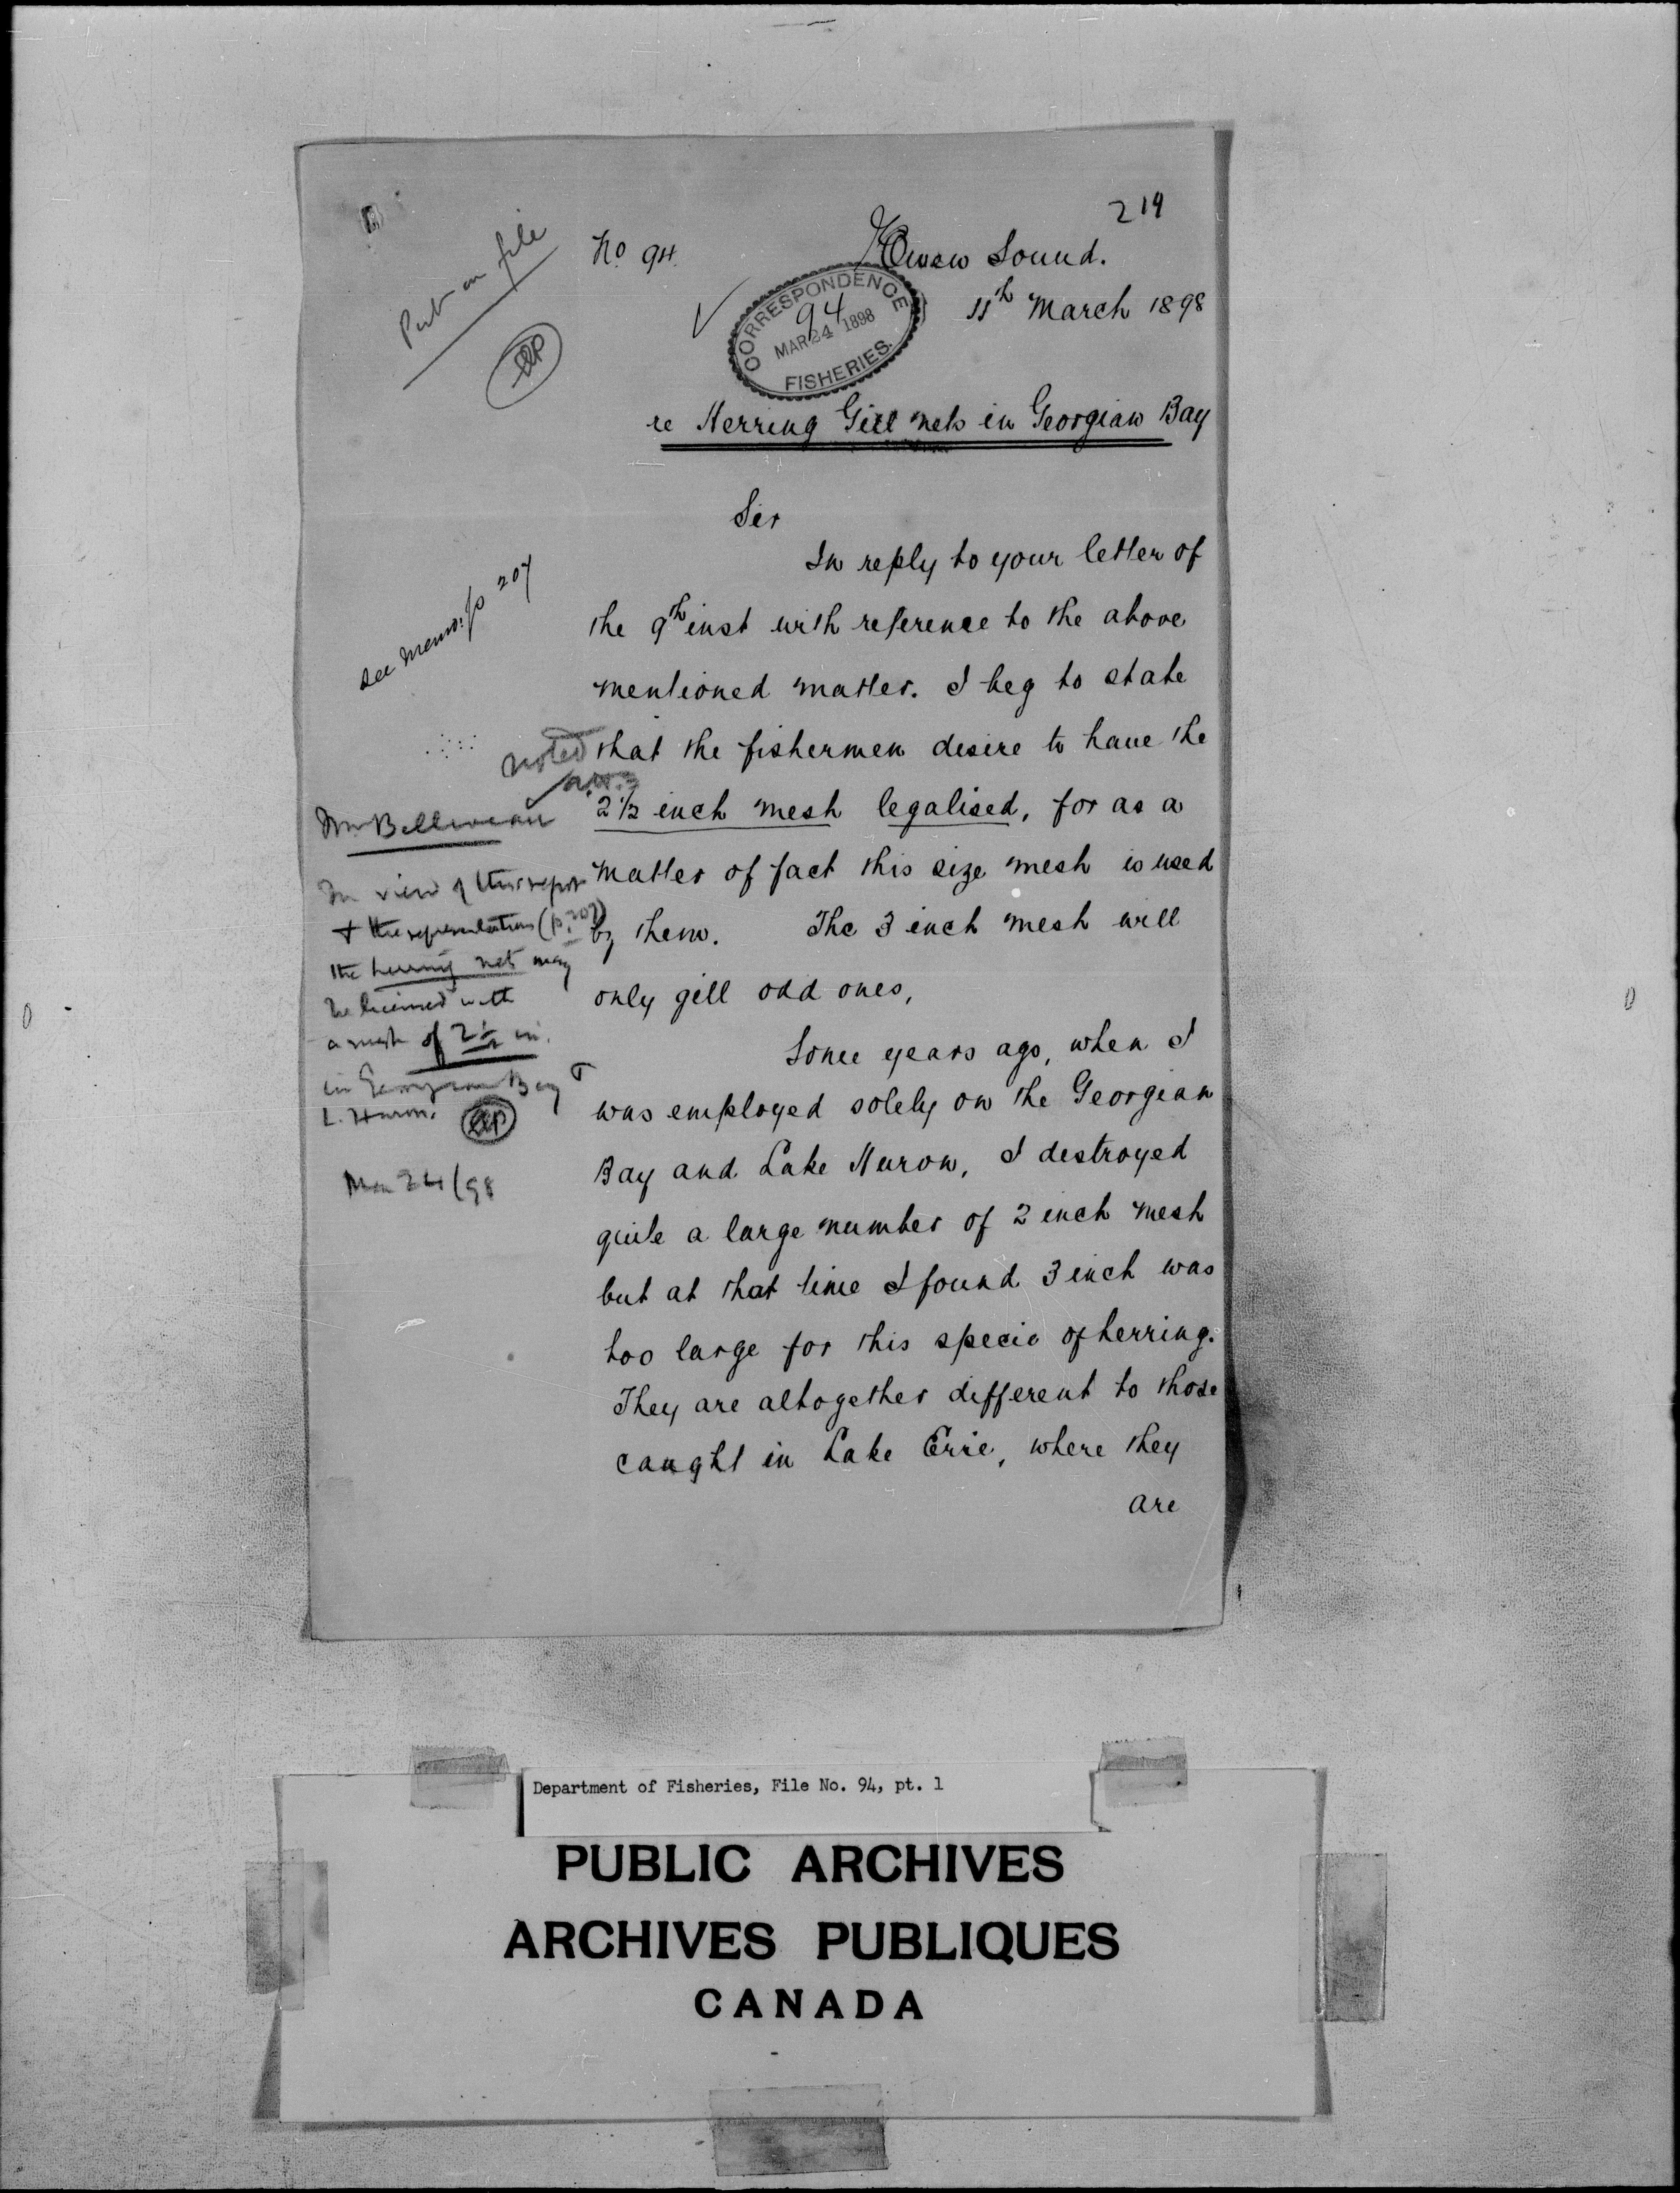 219
Put on file
No 94
Owen Sound.
11th March 1898
CORRESPONDENCE
94
MAR 24 1898
FISHERIES.
re Herring Gill nets in Georgian Bay
Sir
In reply to your letter of
the 9th inst with reference to the above
mentioned matter. I beg to state
that the fishermen desire to have the
2 1/2 inch mesh legalised, for as a
matter of fact this size mesh is used
by them. The 3 inch mesh will
only gill odd ones,
Some years ago, when I
was employed solely on the Georgian
Bay and Lake Huron, I destroyed
quite a large number of 2 inch mesh
but at that time I found 3 inch was
too large for this specie of herring.
They are altogether different to those
caught in Lake Erie, where they
are
see memo. p 207
noted
Mr Belliveau
In view of this report
+ the representations (p. 207)
the herring nets may
be licensed with
a mesh of 2 1/2 in.
in Georgian Bay &
L. Huron.
Mar 24/98
Department of Fisheries, File No. 94, pt. 1
PUBLIC ARCHIVES
ARCHIVES PUBLIQUES
CANADA